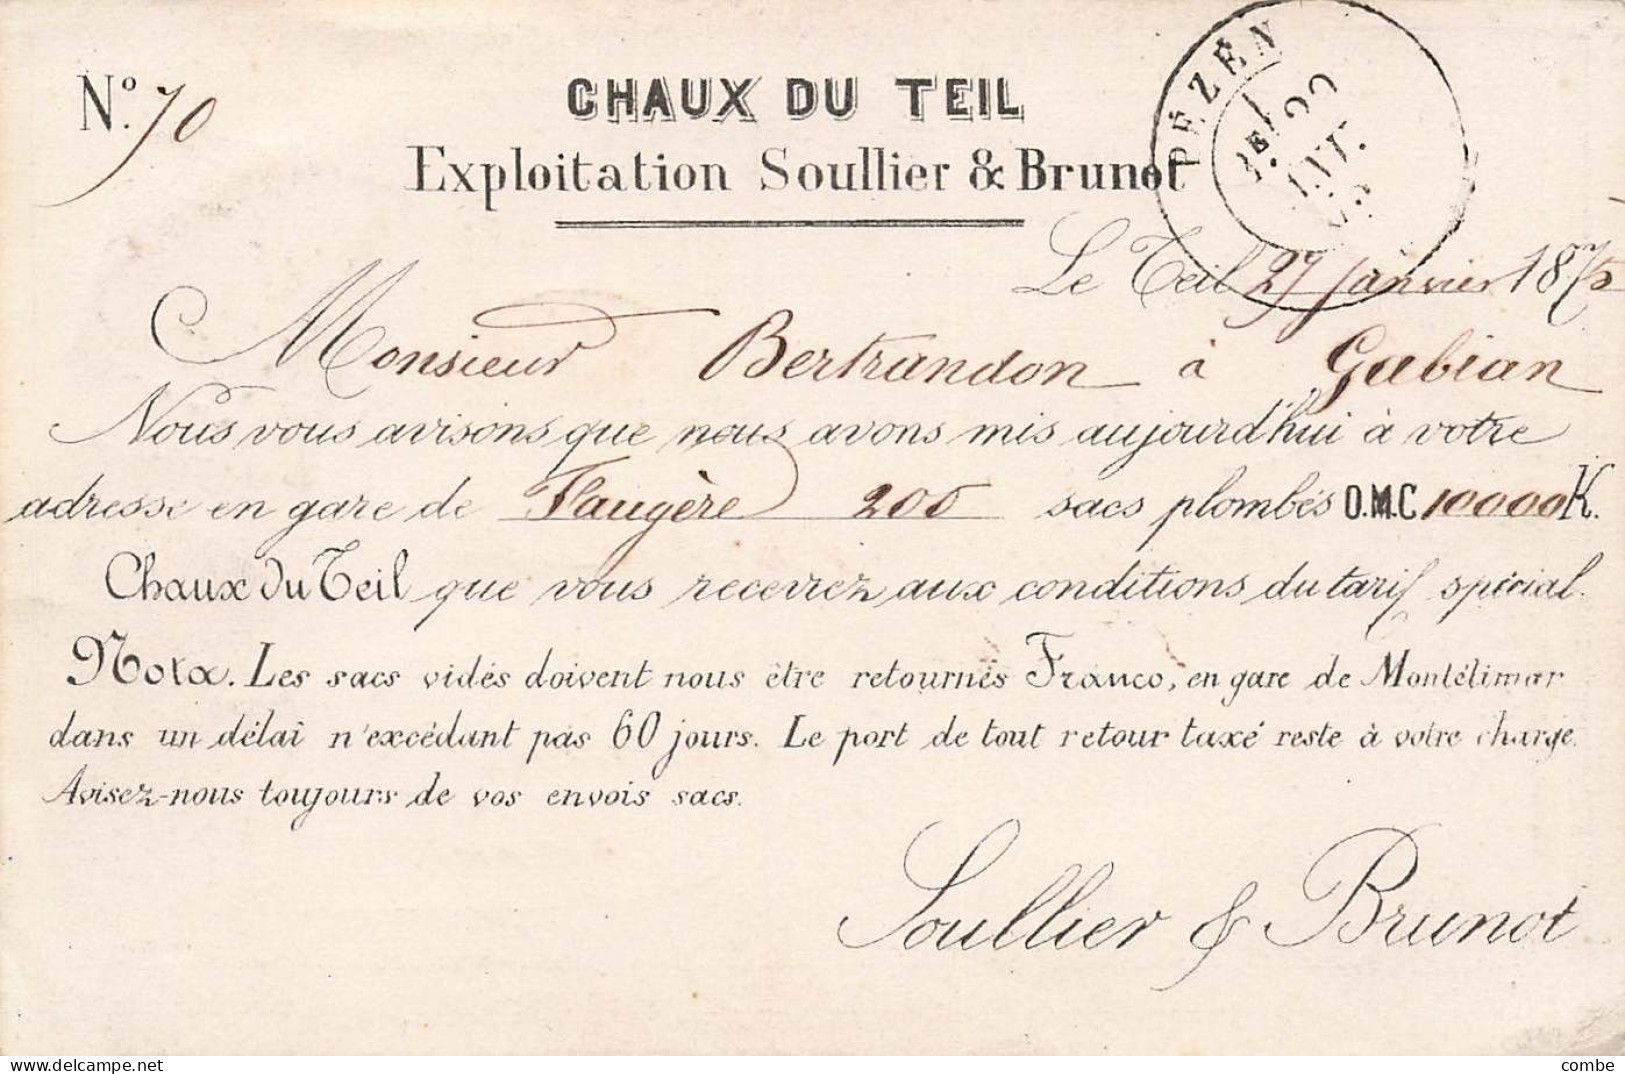 N.º 70
CHAUX DU TEIL
Exploitation Soullier & Brunot
PÉZÉN
Le Teil 27 janvier 1875
Monsieur Bertrandon à Gabian
Nous vous avisons que nous avons mis aujourd'hui à votre
adresse en gare de Faugère 200 sacs plombés O.M.C 10000 K.
Chaux du Teil que vous recevrez aux conditions du tarif spécial.
Nota. Les sacs vidés doivent nous être retournés Franco, en gare de Montélimar
dans un délai n'excédant pas 60 jours. Le port de tout retour taxé reste à votre charge.
Avisez-nous toujours de vos envois sacs.
Soullier & Brunot
combe